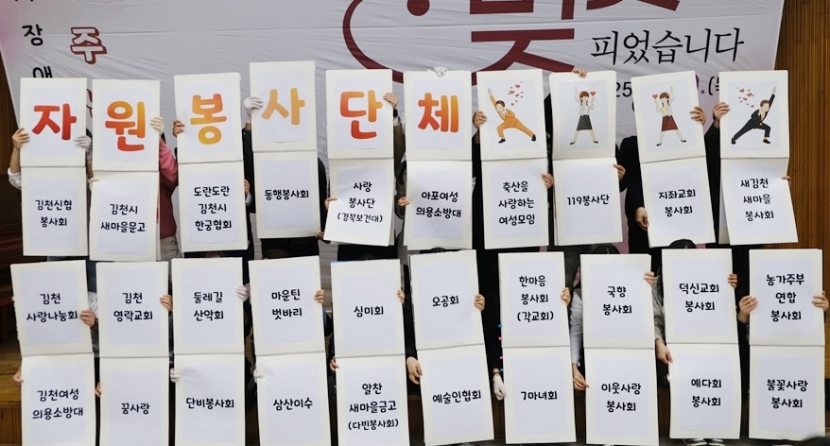 피었습니다
장
애
주
25
자원봉사단체
김천신협
봉사회
김천시
새마을문고
도란도란
김천시
한궁협회
동행봉사회
사랑
봉사단
(경북보건대)
아포여성
의용소방대
축산을
사랑하는
여성모임
119봉사단
지좌교회
봉사회
새김천
새마을
봉사회
김천
사랑나눔회
김천
영락교회
둘레길
산악회
마운틴
벗바리
심미회
오공회
한마음
봉사회
(각교회)
국향
봉사회
덕신교회
봉사회
농가주부
연합
봉사회
김천여성
의용소방대
꿈사랑
단비봉사회
삼산이수
알찬
새마을금고
(다빈봉사회)
예술인협회
7마녀회
이웃사랑
봉사회
예다회
봉사회
불꽃사랑
봉사회